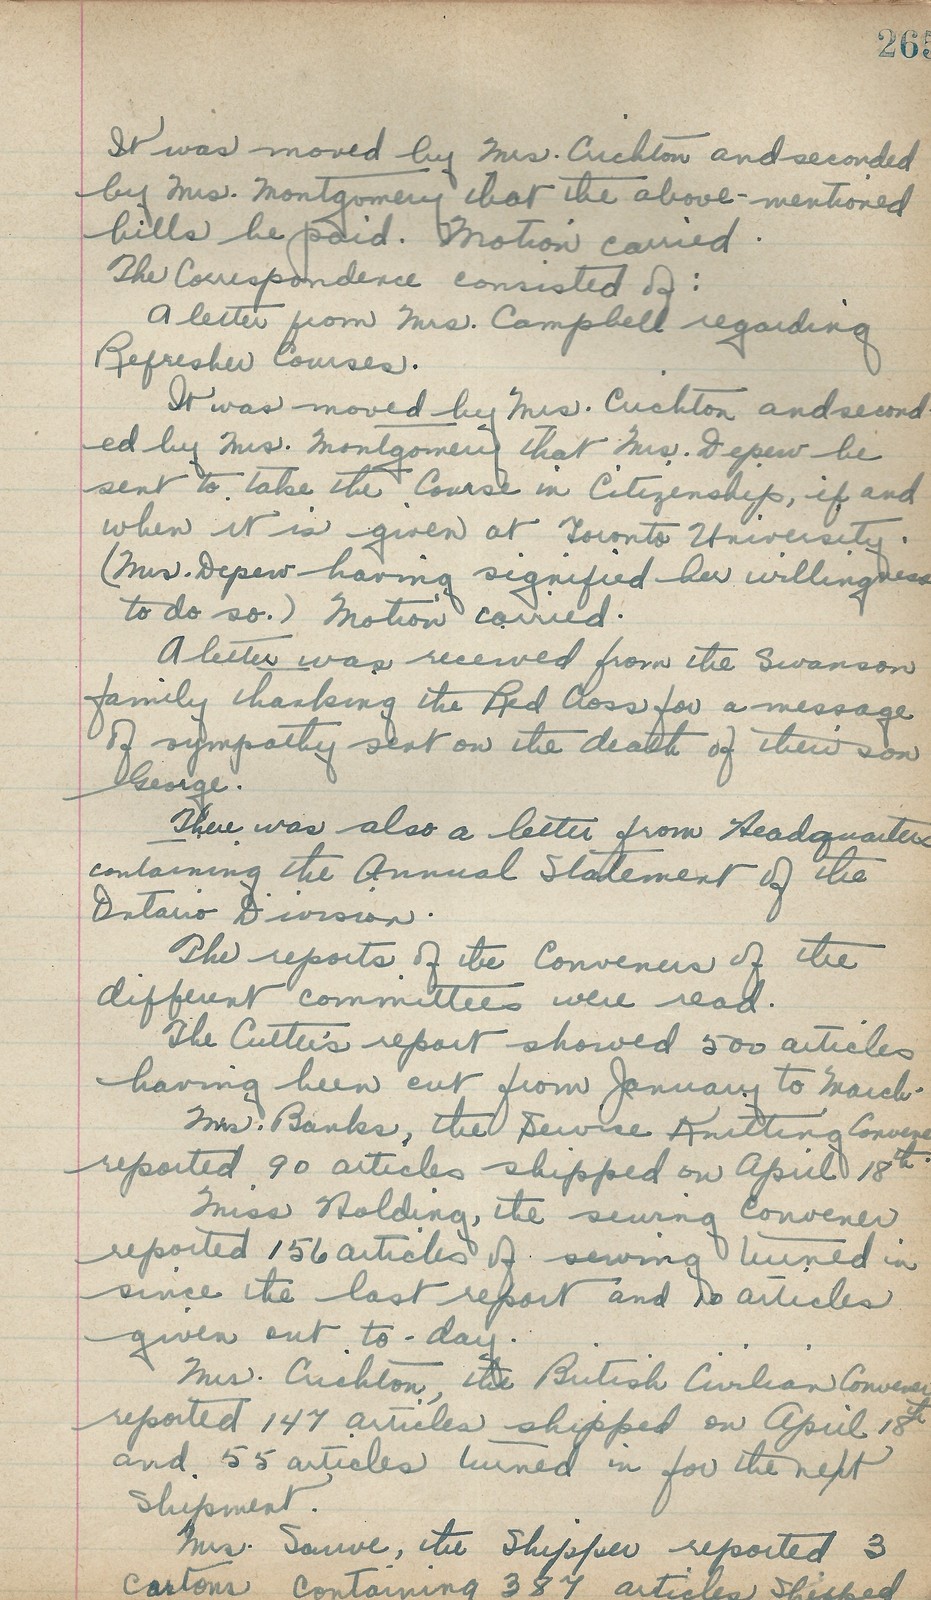 265
It was moved by Mrs. Crichton and seconded
by Mrs. Montgomery that the above-mentioned
bills be paid. Motion carried.
The Correspondence consisted of:
A letter from Mrs. Campbell regarding
Refresher Courses.
It was moved by Mrs. Crichton and second-
ed by Mrs. Montgomery that Mrs. Depew be
sent to take the Course in Citizenship, if and
when it is given at Toronto University.
(Mrs. Depew having signified her willingness
to do so.) Motion carried.
A letter was received from the Swanson
family thanking the Red Cross for a message
of sympathy sent on the death of their son
George.
There was also a letter from Headquarters
containing the Annual Statement of the
Ontario Division.
The reports of the Conveners of the
different committees were read.
The Cutter's report showed 500 articles
having been cut from January to March.
Mrs. Banks, the Service Knitting Convener
reported 90 articles shipped on April 18th.
Miss Holding, the sewing Convener
reported 156 articles of sewing turned in
since the last report and 10 articles
given out to-day.
Mrs. Crichton, the British Civilian Convener
reported 147 articles shipped on April 18th
and 55 articles turned in for the next
Shipment.
Mrs. Sauve, the Shipper reported 3
cartons containing 387 articles shipped